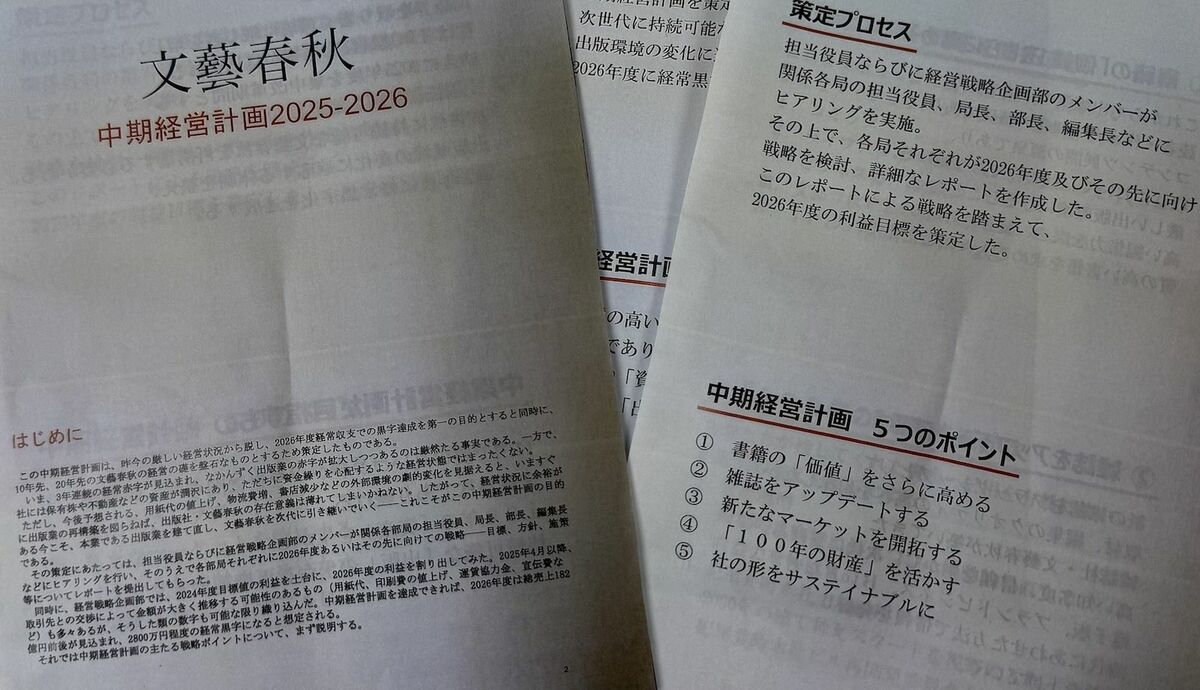 文藝春秋
中期経営計画2025-2026
はじめに
この中期経営計画は、昨今の厳しい経営状況から脱し、2026年度経常収支での黒字達成を第一の目的とすると同時に、
10年先、20年先の文藝春秋の経営の礎を盤石なものとするため策定したものである。
いま、3年連続の経常赤字が見込まれ、なかんずく出版業の赤字が拡大しつつあるのは厳然たる事実である。一方で、
社には保有株や不動産などの資産が潤沢にあり、ただちに資金繰りを心配するような経営状態ではまったくない。
ただし、今後予想される、用紙代の値上げ、物流費増、書店減少などの外部環境の劇的変化を見据えると、いますぐ
に出版業の再構築を図らねば、出版社・文藝春秋の存在意義は薄れてしまいかねない。したがって、経営状況に余裕が
ある今こそ、本業である出版業を建て直し、文藝春秋を次代に引き継いでいく――これこそがこの中期経営計画の目的
である。
その策定にあたっては、担当役員ならびに経営戦略企画部のメンバーが関係各部局の担当役員、局長、部長、編集長
などにヒアリングを行い、そのうえで各部局それぞれに2026年度あるいはその先に向けての戦略――目標、方針、施策
等についてレポートを提出してもらった。
同時に、経営戦略企画部では、2024年度目標値の利益を土台に、2026年度の利益を割り出してみた。2025年4月以降、
取引先との交渉によって金額が大きく推移する可能性のあるもの（用紙代、印刷費の値上げ、運賃協力金、宣伝費な
ど）も多々あるが、そうした類の数字も可能な限り織り込んだ。中期経営計画を達成できれば、2026年度は総売上182
億円前後が見込まれ、2800万円程度の経常黒字になると想定される。
それでは中期経営計画の主たる戦略ポイントについて、まず説明する。
2
経営計画を策定
次世代に持続可能な
出版環境の変化に
2026年度に経常黒
経営計画
の高い
であり
「資
策定プロセス
担当役員ならびに経営戦略企画部のメンバーが
関係各局の担当役員、局長、部長、編集長などに
ヒアリングを実施。
その上で、各局それぞれが2026年度及びその先に向け
戦略を検討、詳細なレポートを作成した。
このレポートによる戦略を踏まえて、
2026年度の利益目標を策定した。
中期経営計画 5つのポイント
① 書籍の「価値」をさらに高める
② 雑誌をアップデートする
③ 新たなマーケットを開拓する
④ 「100年の財産」を活かす
⑤ 社の形をサステイナブルに